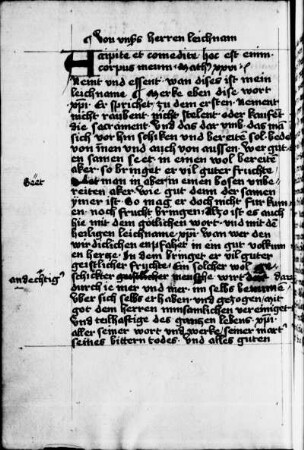 ¶ Von vnsʒ herren leichnam
Accipite et comedite hoc est enim
corpus meum. Mathi xxvi ¶
Nemt vnd essent. wan dises ist mein
leichname. ¶ Merke eben dise wort
xpi. Er sprichet zu dem ersten. Nement
nicht raubent. nicht stelent oder kaufet
die sacrament. Vnd das dar vmb. das mā
sich vor hin schiken vnd bereite sol. bede
von īnen vnd auch von aussen. Wer gut
en samen seet in einen wol bereitē
aker so bringet er vil guter fruchte.
man in aber in einen bosen vnbe
Seet
reiten aker wie gut denn der samen
ymer ist. So mag er doch niht fur kum
en. noch frucht bringen. Also ist es auch
hie mit dem gotlichen wort. vnd mit dē
heiligen leichname. xpi. Won wer den
wirdiclichen enpfaher in ein gut volkum
en hercze. In dem bringet er vil guter
geistlicher fruchte. ein solcher wol
andechtigʳ
schickter mensche wirt
durch ie mer vnd mer. in selb
Vber sich selb erhaben vnd gezogen. mit
got dem herren minsamlichen vereiniget
Vnd teilhaftige des ganczen lebens. xpi.
aller seiner wort vnd werke. seiner mart
seines bittern todes. vnd alles guten